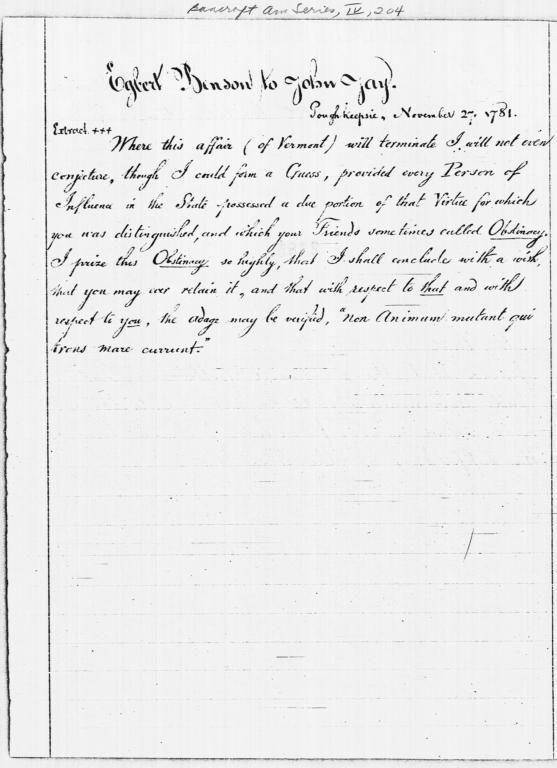 Bancroft Am Series, IV, 204
Egbert Benson to John Jay.
Poughkeepsie, November 27, 1781.
Extract. +++
Where this affair (of Vermont) will terminate I will not even
conjecture, though I could form a Guess, provided every Person of
Influence in the State possessed a due portion of that Virtue for which
you was distinguished, and which your Friends sometimes called Obstinacy.
I prize this Obstinacy so highly, that I shall conclude with a wish,
that you may ever retain it, and that with respect to that and with
respect to you, the adage may be verified, "non Animum mutant qui
trans mare current."